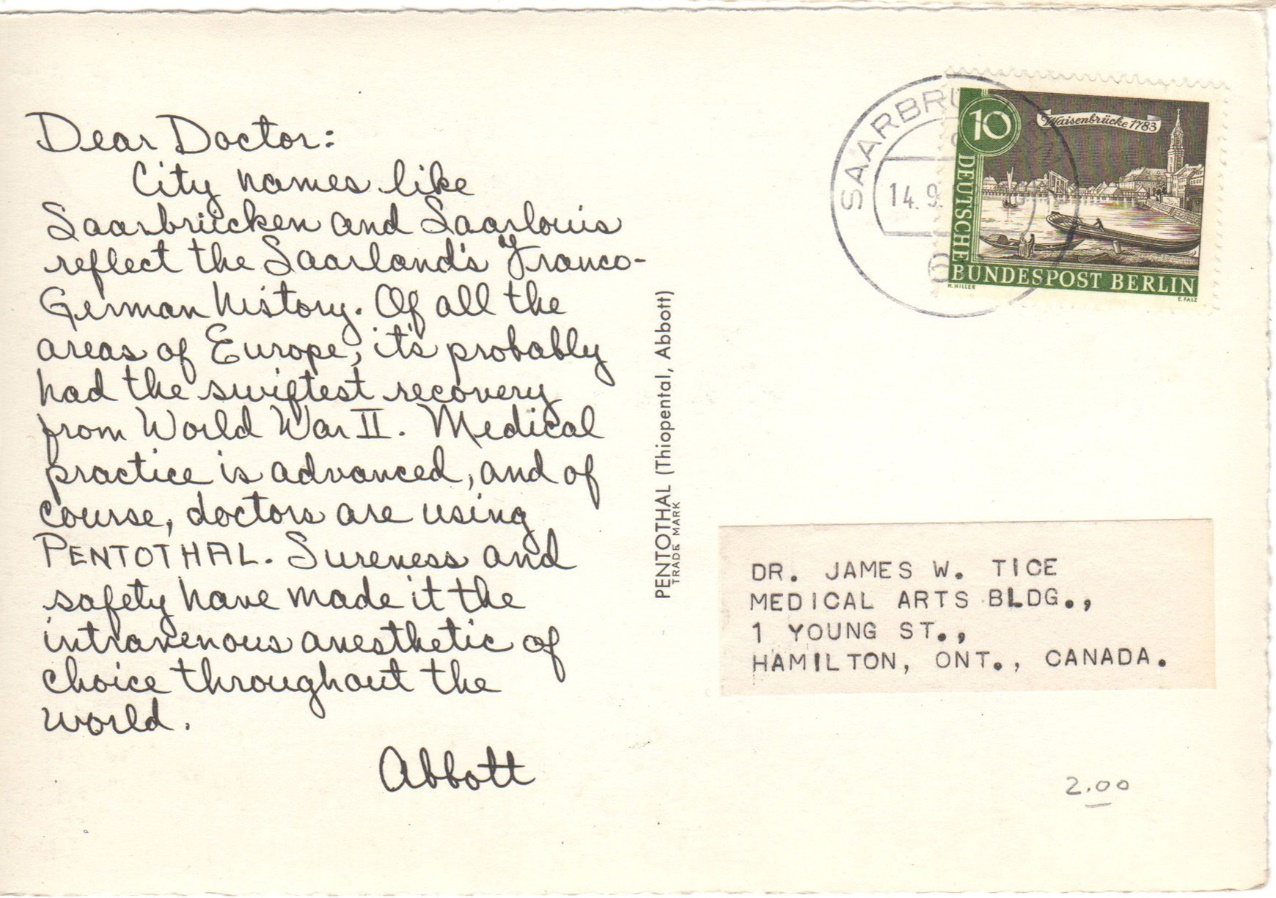 Dear Doctor:
City names like
Saarbrücken and Saarlouis
reflect the Saarland's Franco-
German history. Of all the
areas of Europe, it's probably
had the swiftest recovery
from World War II. Medical
practice is advanced, and of
course, doctors are using
PENTOTHAL. Sureness and
safety have made it the
intravenous anesthetic of
choice throughout the
world.
Abbott
PENTOTHAL (Thiopental, Abbott)
TRADE MARK
SAARBRÜ
14.9.
10
Waisenbrücke 1783
DEUTSCHE
BUNDESPOST BERLIN
H. HILLER
E. FALZ
DR. JAMES W. TICE
MEDICAL ARTS BLDG.,
1 YOUNG ST.,
HAMILTON, ONT., CANADA.
2.00